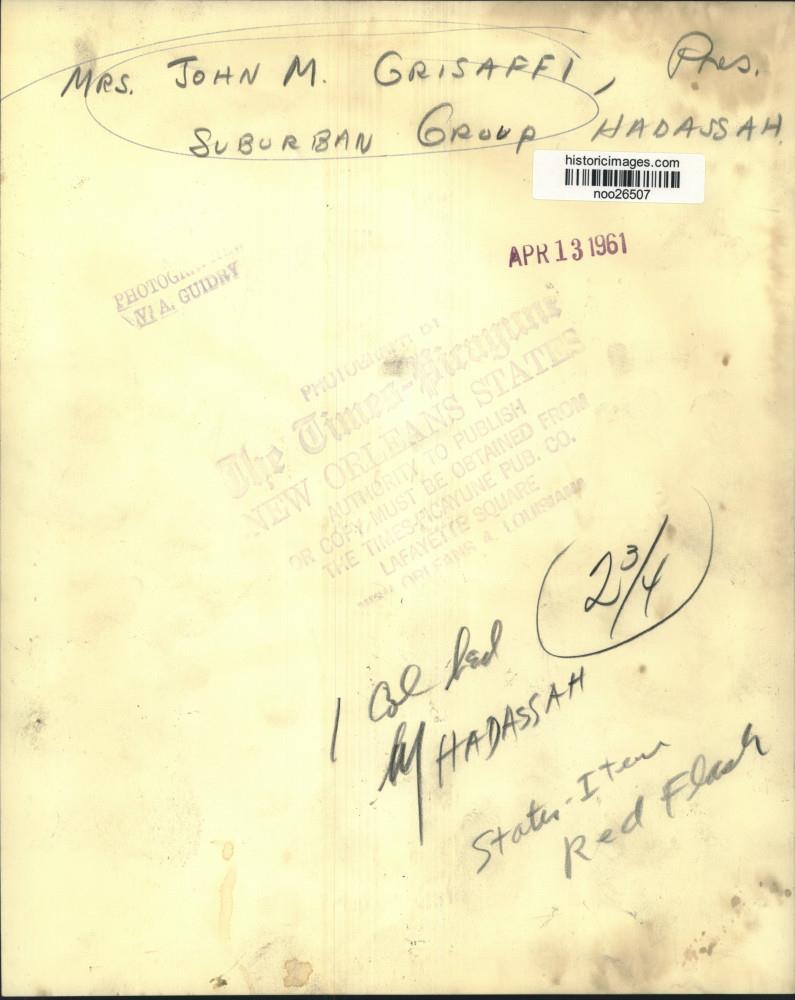 MRS. JOHN M. GRISAFFI, Pres.
SUBURBAN GROUP HADASSAH
historicimages.com
noo26507
APR 13 1961
V. A. GUIDRY
PHOTOGRAPH BY
The Times-Picayune
NEW ORLEANS STATES
AUTHORITY TO PUBLISH
OR COPY MUST BE OBTAINED FROM
THE TIMES-PICAYUNE PUB. CO.
LAFAYETTE SQUARE
NEW ORLEANS 4, LOUISIANA
2 3/4
1 Col
HADASSAH
States-Item
Red Flash